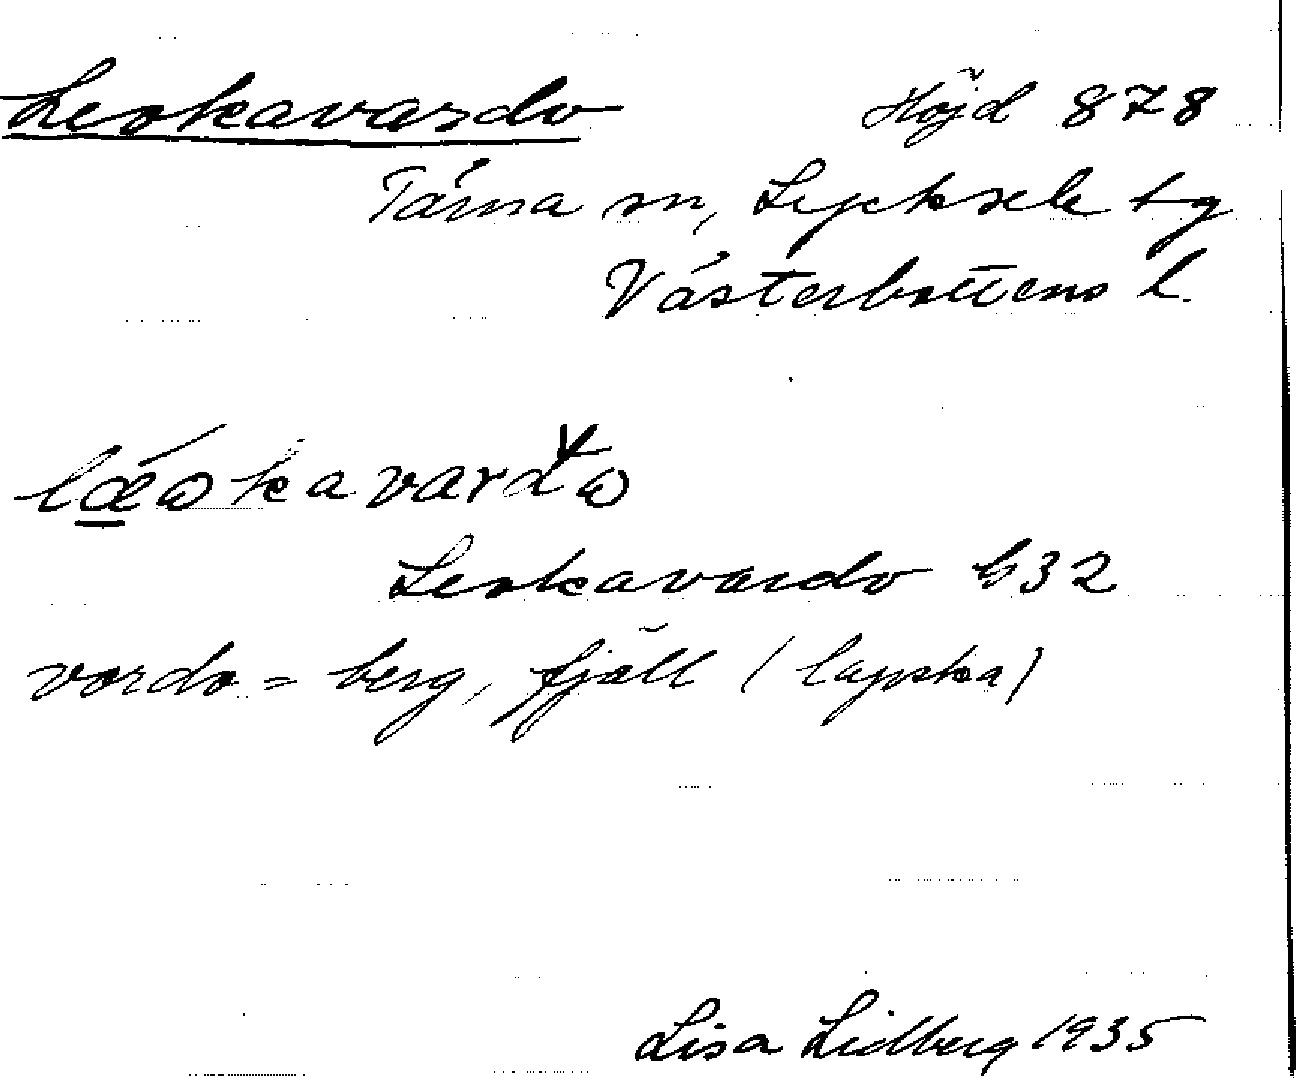 Leskavardo Höjd 878
Tärna sn, Lycksele tg
Västerbottens l.
Leskavardo G32
vardo = berg, fjäll (lapska)
Lisa Lidberg 1935